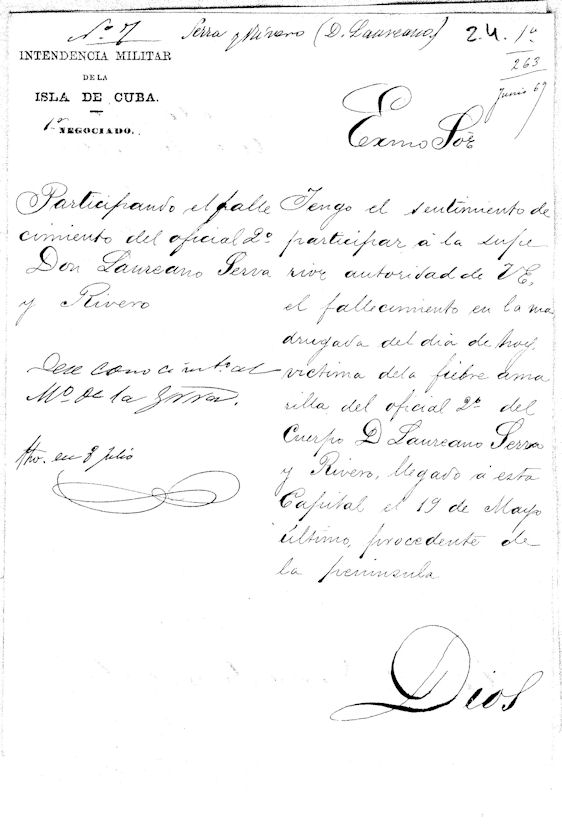 Nº 7
Serra y Rivero (D. Laureano.)
24. 1º
263
Junio 69
INTENDENCIA MILITAR
DE LA
ISLA DE CUBA.
1º NEGOCIADO.
Exmo Sor
Participando el falle
cimiento del oficial 2º
Don Laureano Serra
y Rivero
Dese conocimto al
Mº de la Guerra.
fho. en 8 Julio
Tengo el sentimiento de
participar á la supe
rior autoridad de VE,
el fallecimiento en la ma
drugada del dia de hoy,
victima de la fiebre ama
rilla del oficial 2º del
Cuerpo D Laureano Serra
y Rivero, llegado á esta
Capital el 19 de Mayo
último, procedente de
la peninsula
Dios